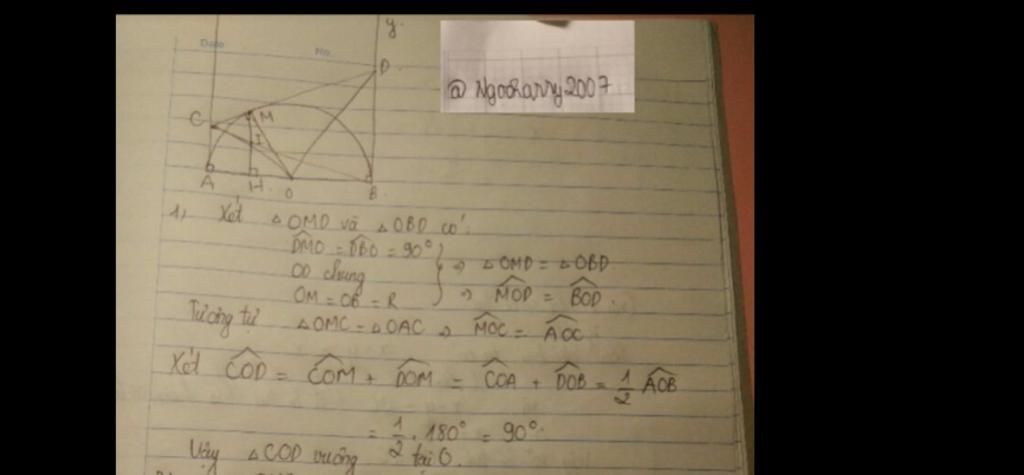 y.
Date
No.
D
C
M
I
A
H
O
B
@Ngocharry2007
1, Xét △OMD và △OBD có:
\widehat{DMO} = \widehat{DBO} = 90°
OD chung
OM = OB = R
⇒ △OMD = △OBD
⇒ \widehat{MOD} = \widehat{BOD}.
Tương tự △OMC = △OAC ⇒ \widehat{MOC} = \widehat{AOC}
Xét \widehat{COD} = \widehat{COM} + \widehat{DOM} = \widehat{COA} + \widehat{DOB} = 1/2 \widehat{AOB}
= 1/2 . 180° = 90°.
Vậy △COD vuông tại O.